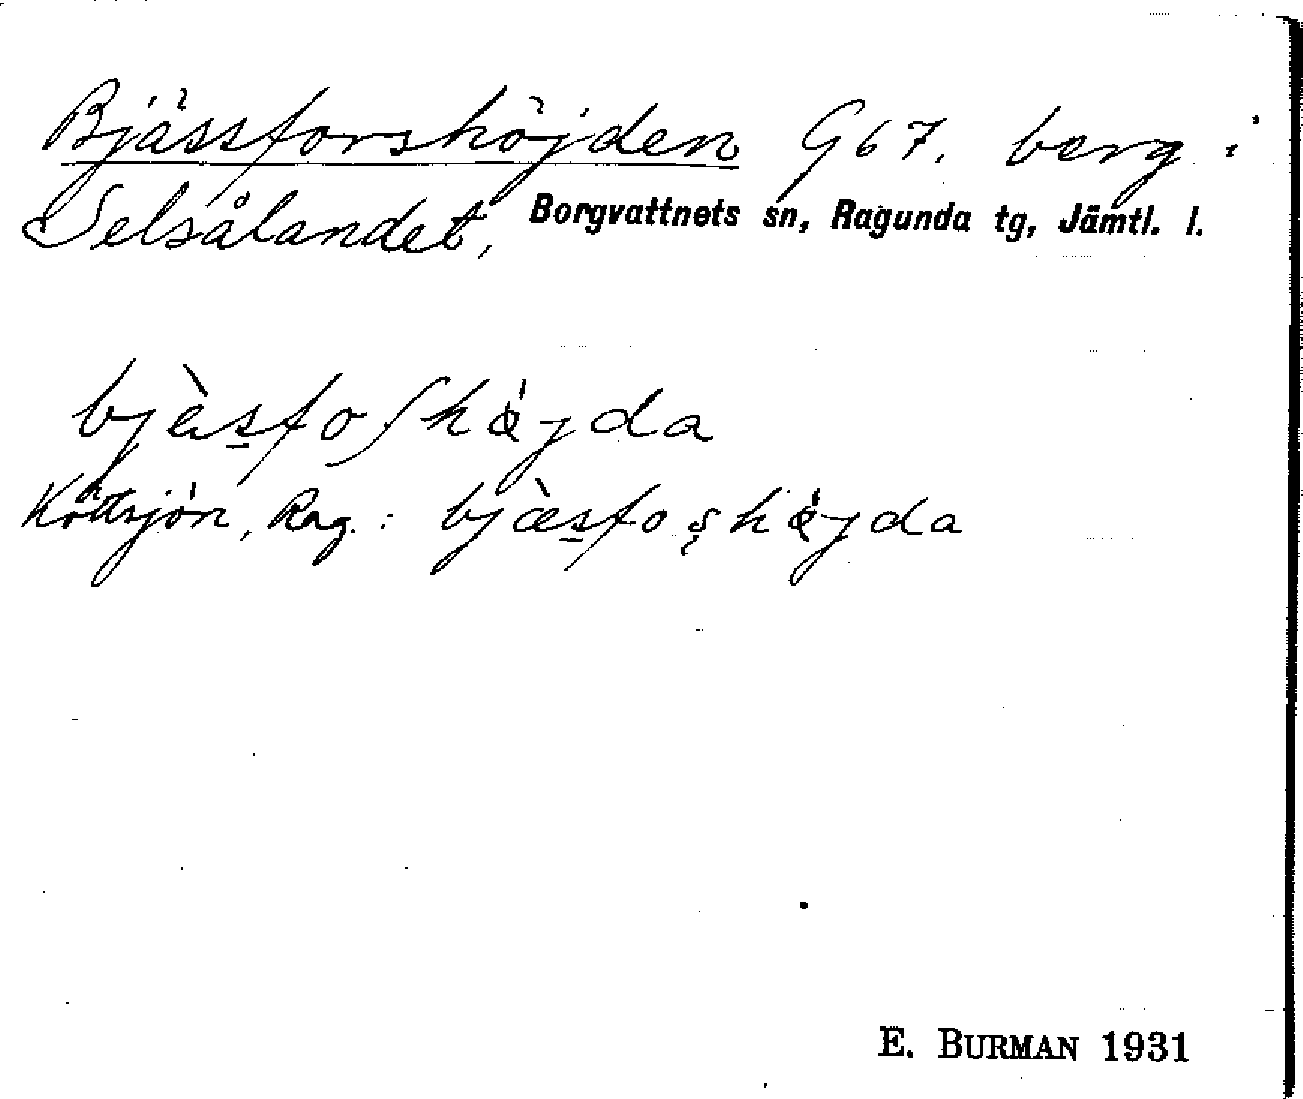 Bjässforshöjden G67. berg i
Selsålandet, Borgvattnets sn, Ragunda tg, Jämtl. l.
bjès̱foʃhǿjda
Köttsjön, Rag.: bjæ̀s̱foşhǿjda
E. BURMAN 1931